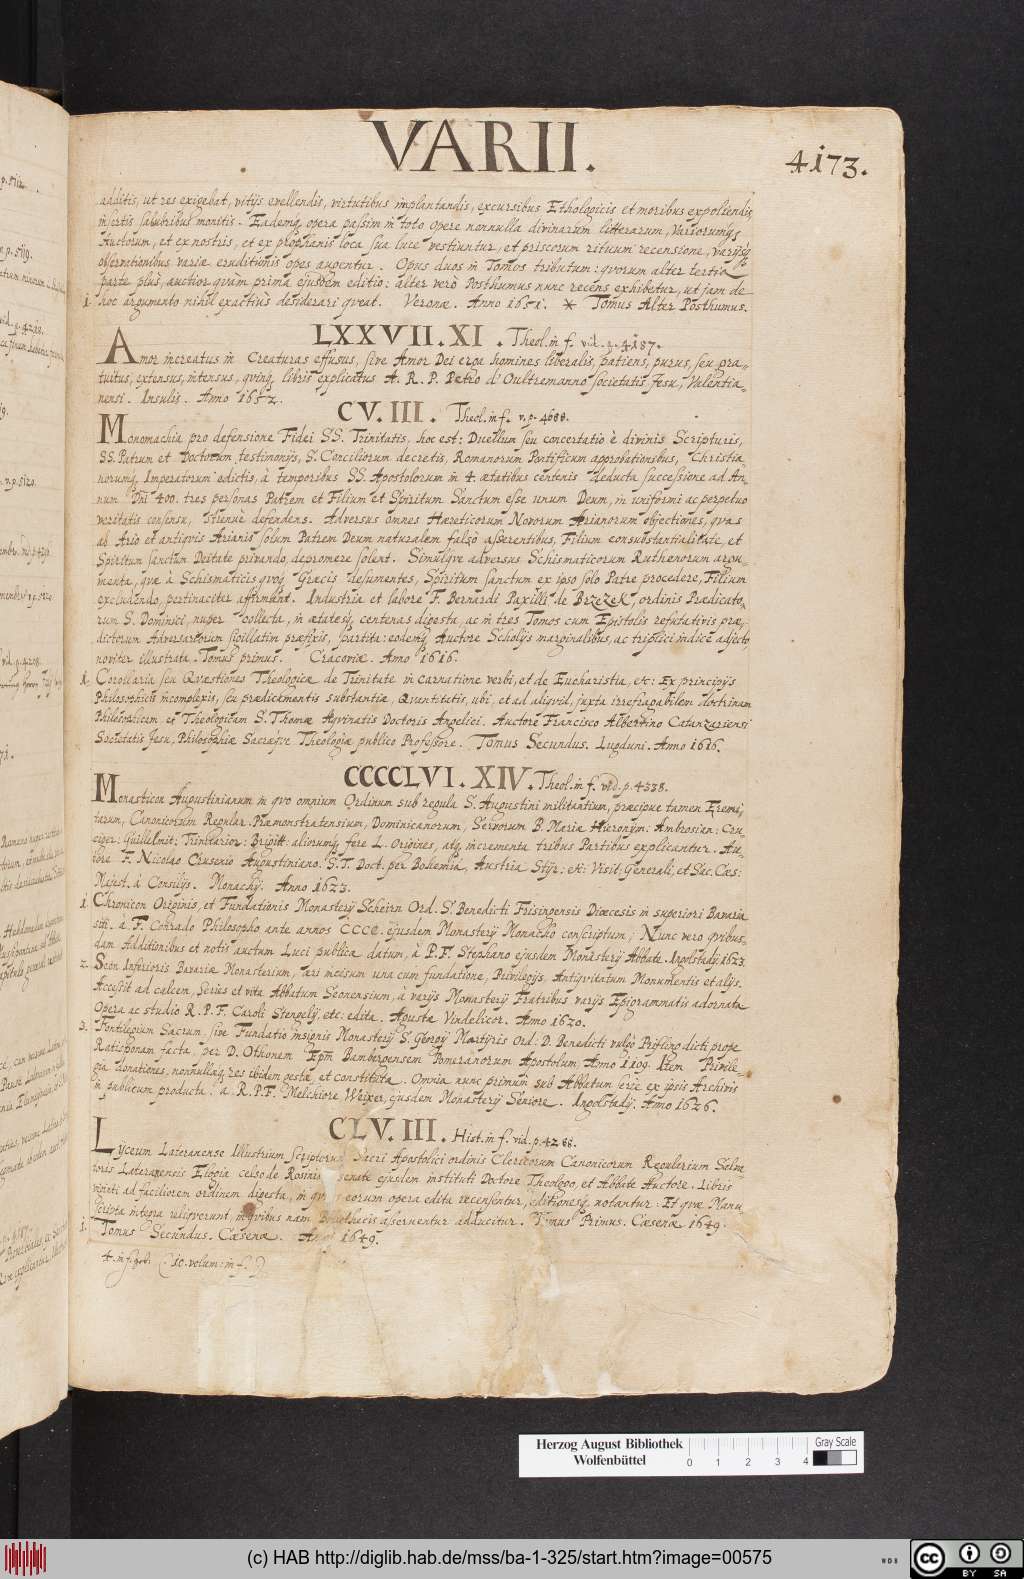 VARII.
4173.
additis, ut res exigebat, vitijs evellendis, virtutibus implantandis, excursibus Ethologicis et moribus expoliendis
insertis salubribus monitis. Eademq; opera passim in toto opere nonnulla divinarum litterarum, Variorumq;
Auctorum, et ex nostris, et ex prophanis loca sua luce vestiuntur, et priscorum rituum recensione, varijsq;
observationibus variæ eruditionis opes augentur. Opus duos in Tomos tributum: quorum alter tertia
parte plus, auctior quàm prima ejusdem editio: alter verò Posthumus nunc recens exhibetur, ut jam de
1. hoc argumento nihil exactius desiderari queat. Veronæ. Anno 1651. * Tomus Alter Posthumus.
LXXVII. XI. Theol. in f. vid. p. 4187.
Amor increatus in Creaturas effusus, sive Amor Dei erga homines liberalis, patiens, purus, seu gra-
tuitus, extensus, intensus, quinq; libris explicatus A. R. P. Petro d'Oultremanno societatis Jesu, Valentia-
nensi. Insulis. Anno 1652.
CV. III. Theol. in f. v. p. 4688.
Monomachia pro defensione Fidei SS. Trinitatis, hoc est: Duellum seu concertatio è divinis Scripturis,
SS. Patrum et Doctorum, testimonijs, S. Conciliorum decretis, Romanorum Pontificum approbationibus, Christia-
norumq; Imperatorum edictis, à temporibus SS. Apostolorum in 4. ætatibus centenis deducta successione ad An-
num Dñi 400. tres personas Patrem et Filium et Spiritum Sanctum esse unum Deum, in uniformi ac perpetuo
veritatis consensu, strenuè defendens. Adversus omnes Hæreticorum Novorum Arianorum objectiones, quas
ab Ario et antiquis Arianis solum Patrem Deum naturalem falso asserentibus, Filium consubstantialitate, et
Spiritum sanctum Deitate privando, depromere solent. Simulque adversus Schismaticorum Ruthenorum argu-
menta, quæ à Schismaticis quoq; Græcis desumentes, Spiritum sanctum ex ipso solo Patre procedere, Filium
excludendo, pertinaciter affirmant. Industria et labore F. Bernardi Paxilli de Brzezek, ordinis Prædicato-
rum S. Dominici, nuper collecta, in ætatesq; centenas digesta, ac in tres Tomos cum Epistolis refutativis præ-
dictorum Adversariorum sigillatim præfixis, partita: eodemq; Auctore Scholijs marginalibus, ac triplici indice adjecto,
noviter illustrata. Tomus primus. Cracoviæ. Anno 1616.
1. Corollaria seu Quæstiones Theologicæ de Trinitate in carnatione verbi, et de Eucharistia, etc: Ex principijs
Philosophicis incomplexis, seu prædicamentis substantiæ, Quantitatis, ubi, et ad aliquid, juxta irrefragabilem doctrinam
Philosophicam et Theologicam S. Thomæ Aquinatis Doctoris Angelici. Auctore Francisco Albertino Catanzariensi
Societatis Jesu, Philosophiæ Sacræque Theologiæ publico Professore. Tomus Secundus. Lugduni. Anno 1616.
CCCCLVI. XIV. Theol. in f. vid. p. 4338.
Monasticon Augustinianum in quo omnium Ordinum sub regula S. Augustini militantium, præcipue tamen Eremi-
tarum, Canonicorum Regular. Præmonstratensium, Dominicanorum, Servorum B. Mariæ Hieronym: Ambrosian: Cru-
ciger: Guillelmit: Trinitarior: Brigitt: aliorumq; fere L. Origines, atq; incrementa tribus Partibus explicantur. Au-
tore F. Nicolao Crusenio Augustiniano. S. T. Doct. per Bohemia, Austria Styr: etc: Visit: Generali, et Sac. Cæs:
Majest. à Consilijs. Monachij. Anno 1623.
1. Chronicon Originis, et Fundationis Monasterij Scheirn Ord. S. Benedicti Frisingensis Diœcesis in superiori Bavaria
siti. à F. Conrado Philosopho ante annos CCCC. ejusdem Monasterij Monacho conscriptum; Nunc vero quibus-
dam Additionibus et notis auctum Luci publicæ datum, à P. F. Stephano ejusdem Monasterij Abbate. Ingolstadij. 1623.
2. Seon Inferioris Bavariæ Monasterium, æri incisum una cum fundatione, Privilegijs, Antiquitatum Monumentis et alijs.
Accessit ad calcem, Series et vita Abbatum Seonensium, à varijs Monasterij Fratribus varijs Epigrammatis adornata
Opera ac studio R. P. F. Caroli Stengelij, etc: edita. Augustæ Vindelicor. Anno 1620.
3. Fontilegium Sacrum, sive Fundatio insignis Monasterij S. Georgij Martyris Ord: D. Benedicti vulgò Prifling dicti prope
Ratisponam facta, per D. Othonem Epm̃ Bambergensem Pomeranorum Apostolum, Anno 1109. Item Privile-
gia donationes, nonnullaq; res ibidem gestæ, et constitutæ. Omnia nunc primùm sub Abbatum serie ex ipsis Archivis
in publicum producta. a R. P. F. Melchiore Weixer, ejusdem Monasterij Seniore. Ingolstadij. Anno 1626.
CLV. III. Hist. in f. vid. p. 4268.
Lyceum Lateranense Illustrium scriptorum Sacri Apostolici ordinis Clericorum Canonicorum Regularium Salva-
toris Lateranensis Elogia celso de Rosinis senate ejusdem instituti Doctore Theologo, et Abbate Auctore. Libris
viginti ad faciliorem ordinem digesta, in eorum opera edita recensentur, editionesq; notantur: Et quæ Manu
scripta integra reliquerunt, in quibus nam Bibliothecis asserventur adducitur. Tomus Primus. Cæsenæ 1649.
1. Tomus Secundus. Cæsenæ. Anno 1649.
4. in f. (10. volum: in f.)
Herzog August Bibliothek
Wolfenbüttel
0 1 2 3 4
Gray Scale
(c) HAB http://diglib.hab.de/mss/ba-1-325/start.htm?image=00575
WDB
cc BY SA